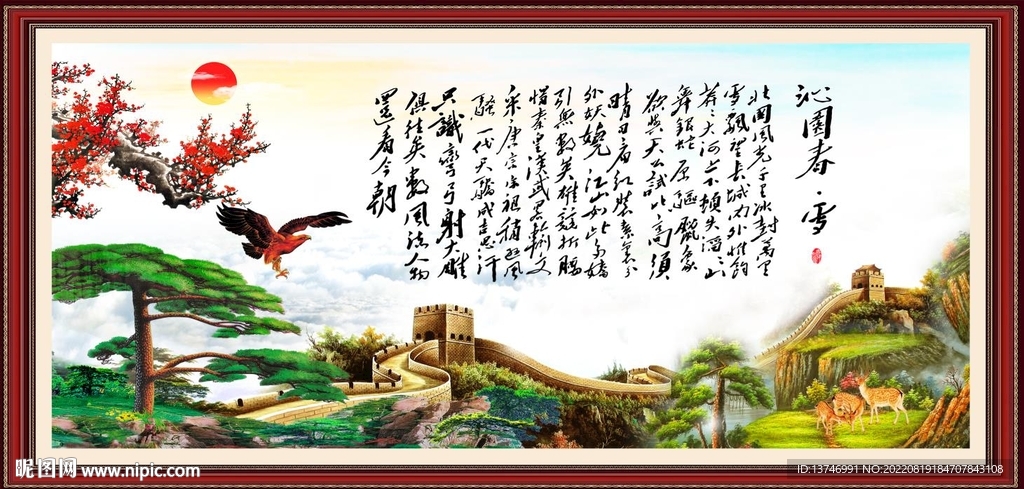 沁園春·雪
北國風光千里冰封萬里
雪飄望長城內外惟餘
莽〻大河上下頓失滔〻山
舞銀蛇原驅臘象
欲與天公試比高須
晴日看紅裝素裹分
外妖嬈江山如此多嬌
引無數英雄競折腰
惜秦皇漢武略輸文
采唐宗宋祖稍遜風
騷一代天驕成吉思汗
只識彎弓射大雕
俱往矣數風流人物
還看今朝
昵图网 www.nipic.com
ID:13746991 NO:20220819184707843108